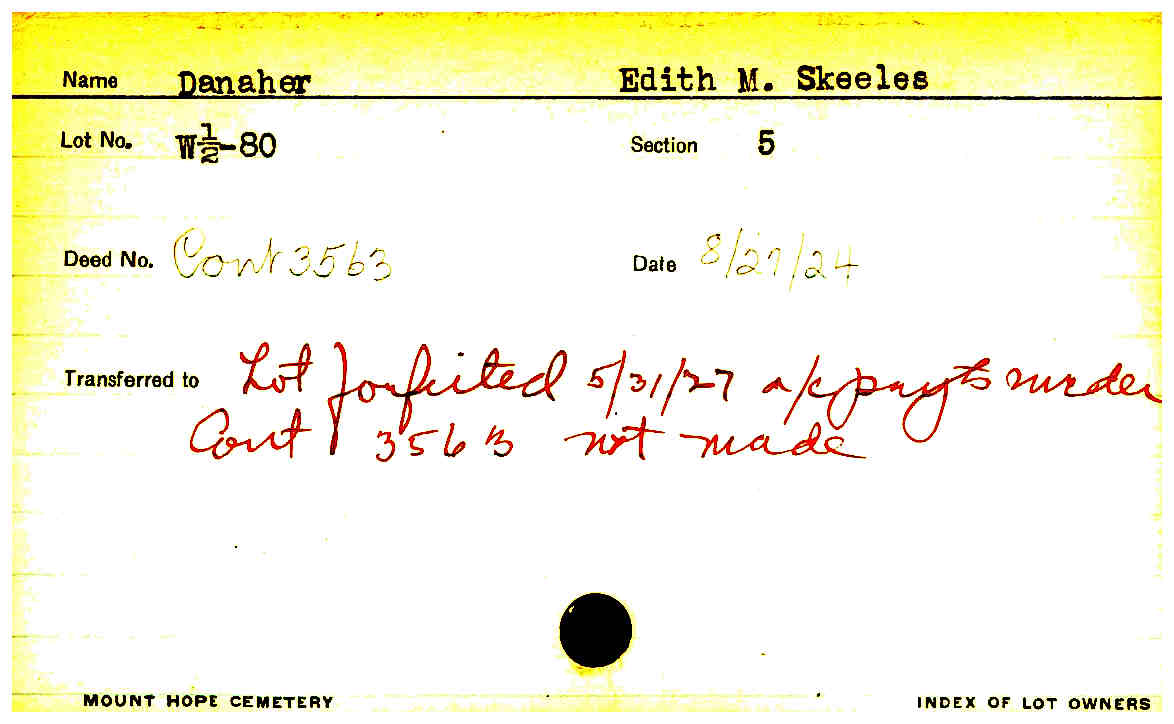 Name Danaher Edith M. Skeeles
Lot No. W½-80 Section 5
Deed No. Cont 3563 Date 8/27/24
Transferred to Lot forfeited 5/31/27 a/c paymts under
Cont 3563 not made
MOUNT HOPE CEMETERY INDEX OF LOT OWNERS